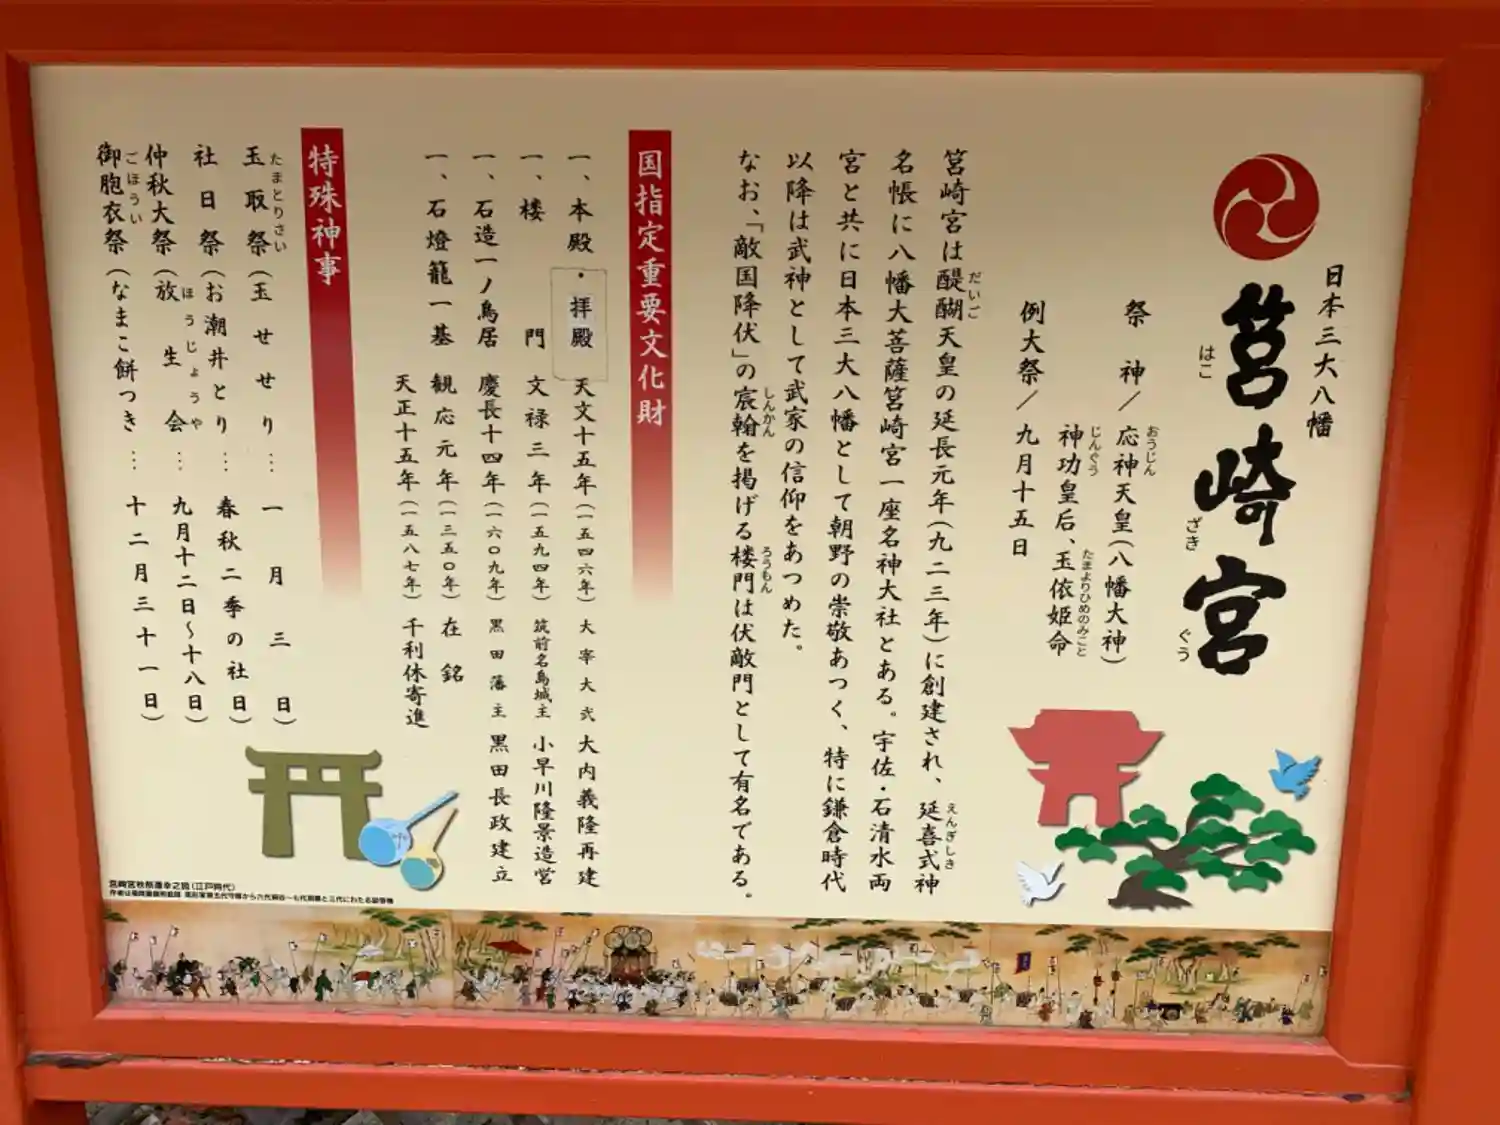 日本三大八幡
筥崎宮
はこ
ざき
ぐう
祭神/応神天皇(八幡大神)
おうじん
神功皇后、玉依姫命
じんぐう
たまよりひめのみこと
例大祭/九月十五日
筥崎宮は醍醐天皇の延長元年(九二三年)に創建され、延喜式神
だいご
えんぎしき
名帳に八幡大菩薩筥崎宮一座名神大社とある。宇佐・石清水両
宮と共に日本三大八幡として朝野の崇敬あつく、特に鎌倉時代
以降は武神として武家の信仰をあつめた。
なお、「敵国降伏」の宸翰を掲げる楼門は伏敵門として有名である。
しんかん
ろうもん
国指定重要文化財
一、本殿・拝殿 天文十五年(一五四六年) 大宰大弐 大内義隆再建
一、楼門 文禄三年(一五九四年) 筑前名島城主 小早川隆景造営
一、石造一ノ鳥居 慶長十四年(一六〇九年) 黒田藩主 黒田長政建立
一、石燈籠一基 観応元年(一三五〇年) 在銘
天正十五年(一五八七年) 千利休寄進
特殊神事
玉取祭(玉せせり… 一月三日)
たまとりさい
社日祭(お潮井とり… 春秋二季の社日)
仲秋大祭(放生会… 九月十二日〜十八日)
ほうじょうや
御胞衣祭(なまこ餅つき… 十二月三十一日)
ごほうい